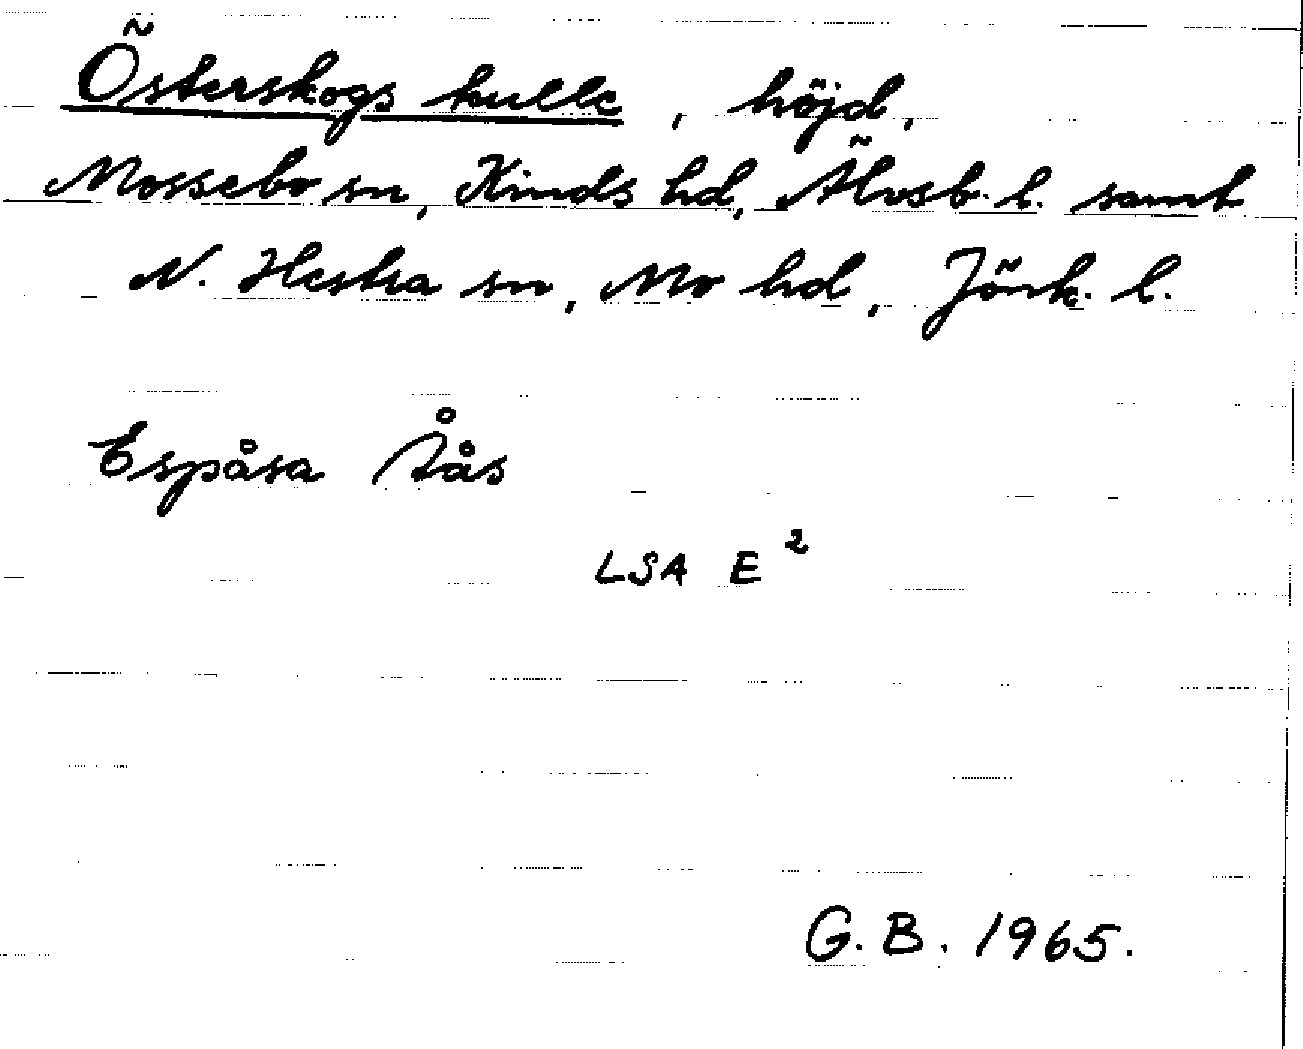 Österskogs kulle, höjd,
Mossebo sn, Kinds hd, Älvsb. l. samt
N. Hestra sn, Mo hd, Jönk. l.
Espåsa
LSA E²
G. B. 1965.